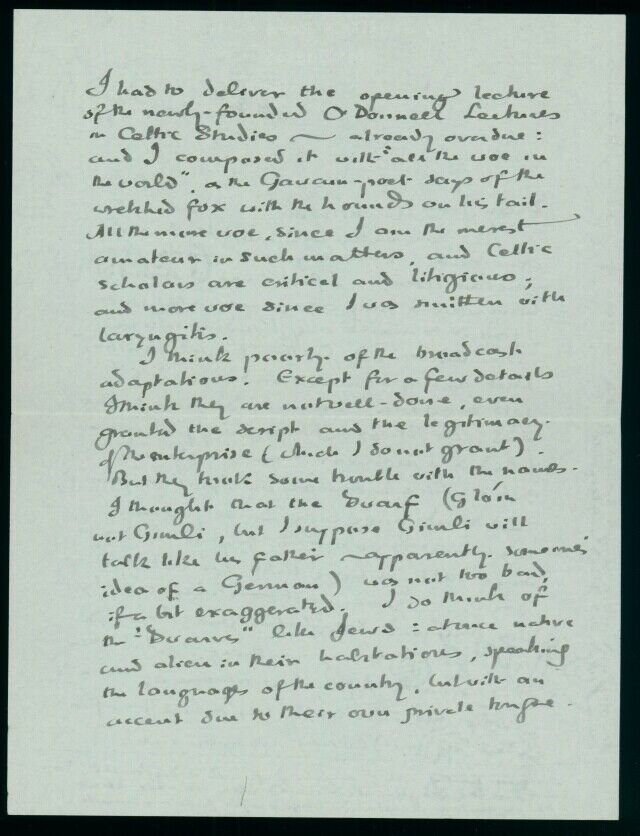 I had to deliver the opening lecture
of the newly-founded O'Donnell Lectures
in Celtic Studies — already overdue:
and I composed it with 'all the woe in
the world", as the Gawain-poet says of the
wretched fox with the hounds on his tail.
All the more woe, since I am the merest
amateur in such matters, and Celtic
scholars are critical and litigious;
and more woe since I was smitten with
laryngitis.
I think poorly of the broadcast
adaptations. Except for a few details
I think they are not well-done, even
granted the script and the legitimacy
of the enterprise (which I do not grant).
But they took some trouble with the names.
I thought that the Dwarf (Glóin
not Gimli, but I suppose Gimli will
talk like his father – apparently someone's
idea of a German) was not too bad,
if a bit exaggerated. I do think of
the 'Dwarves" like Jews: at once native
and alien in their habitations, speaking
the languages of the country, but with an
accent due to their own private tongue.